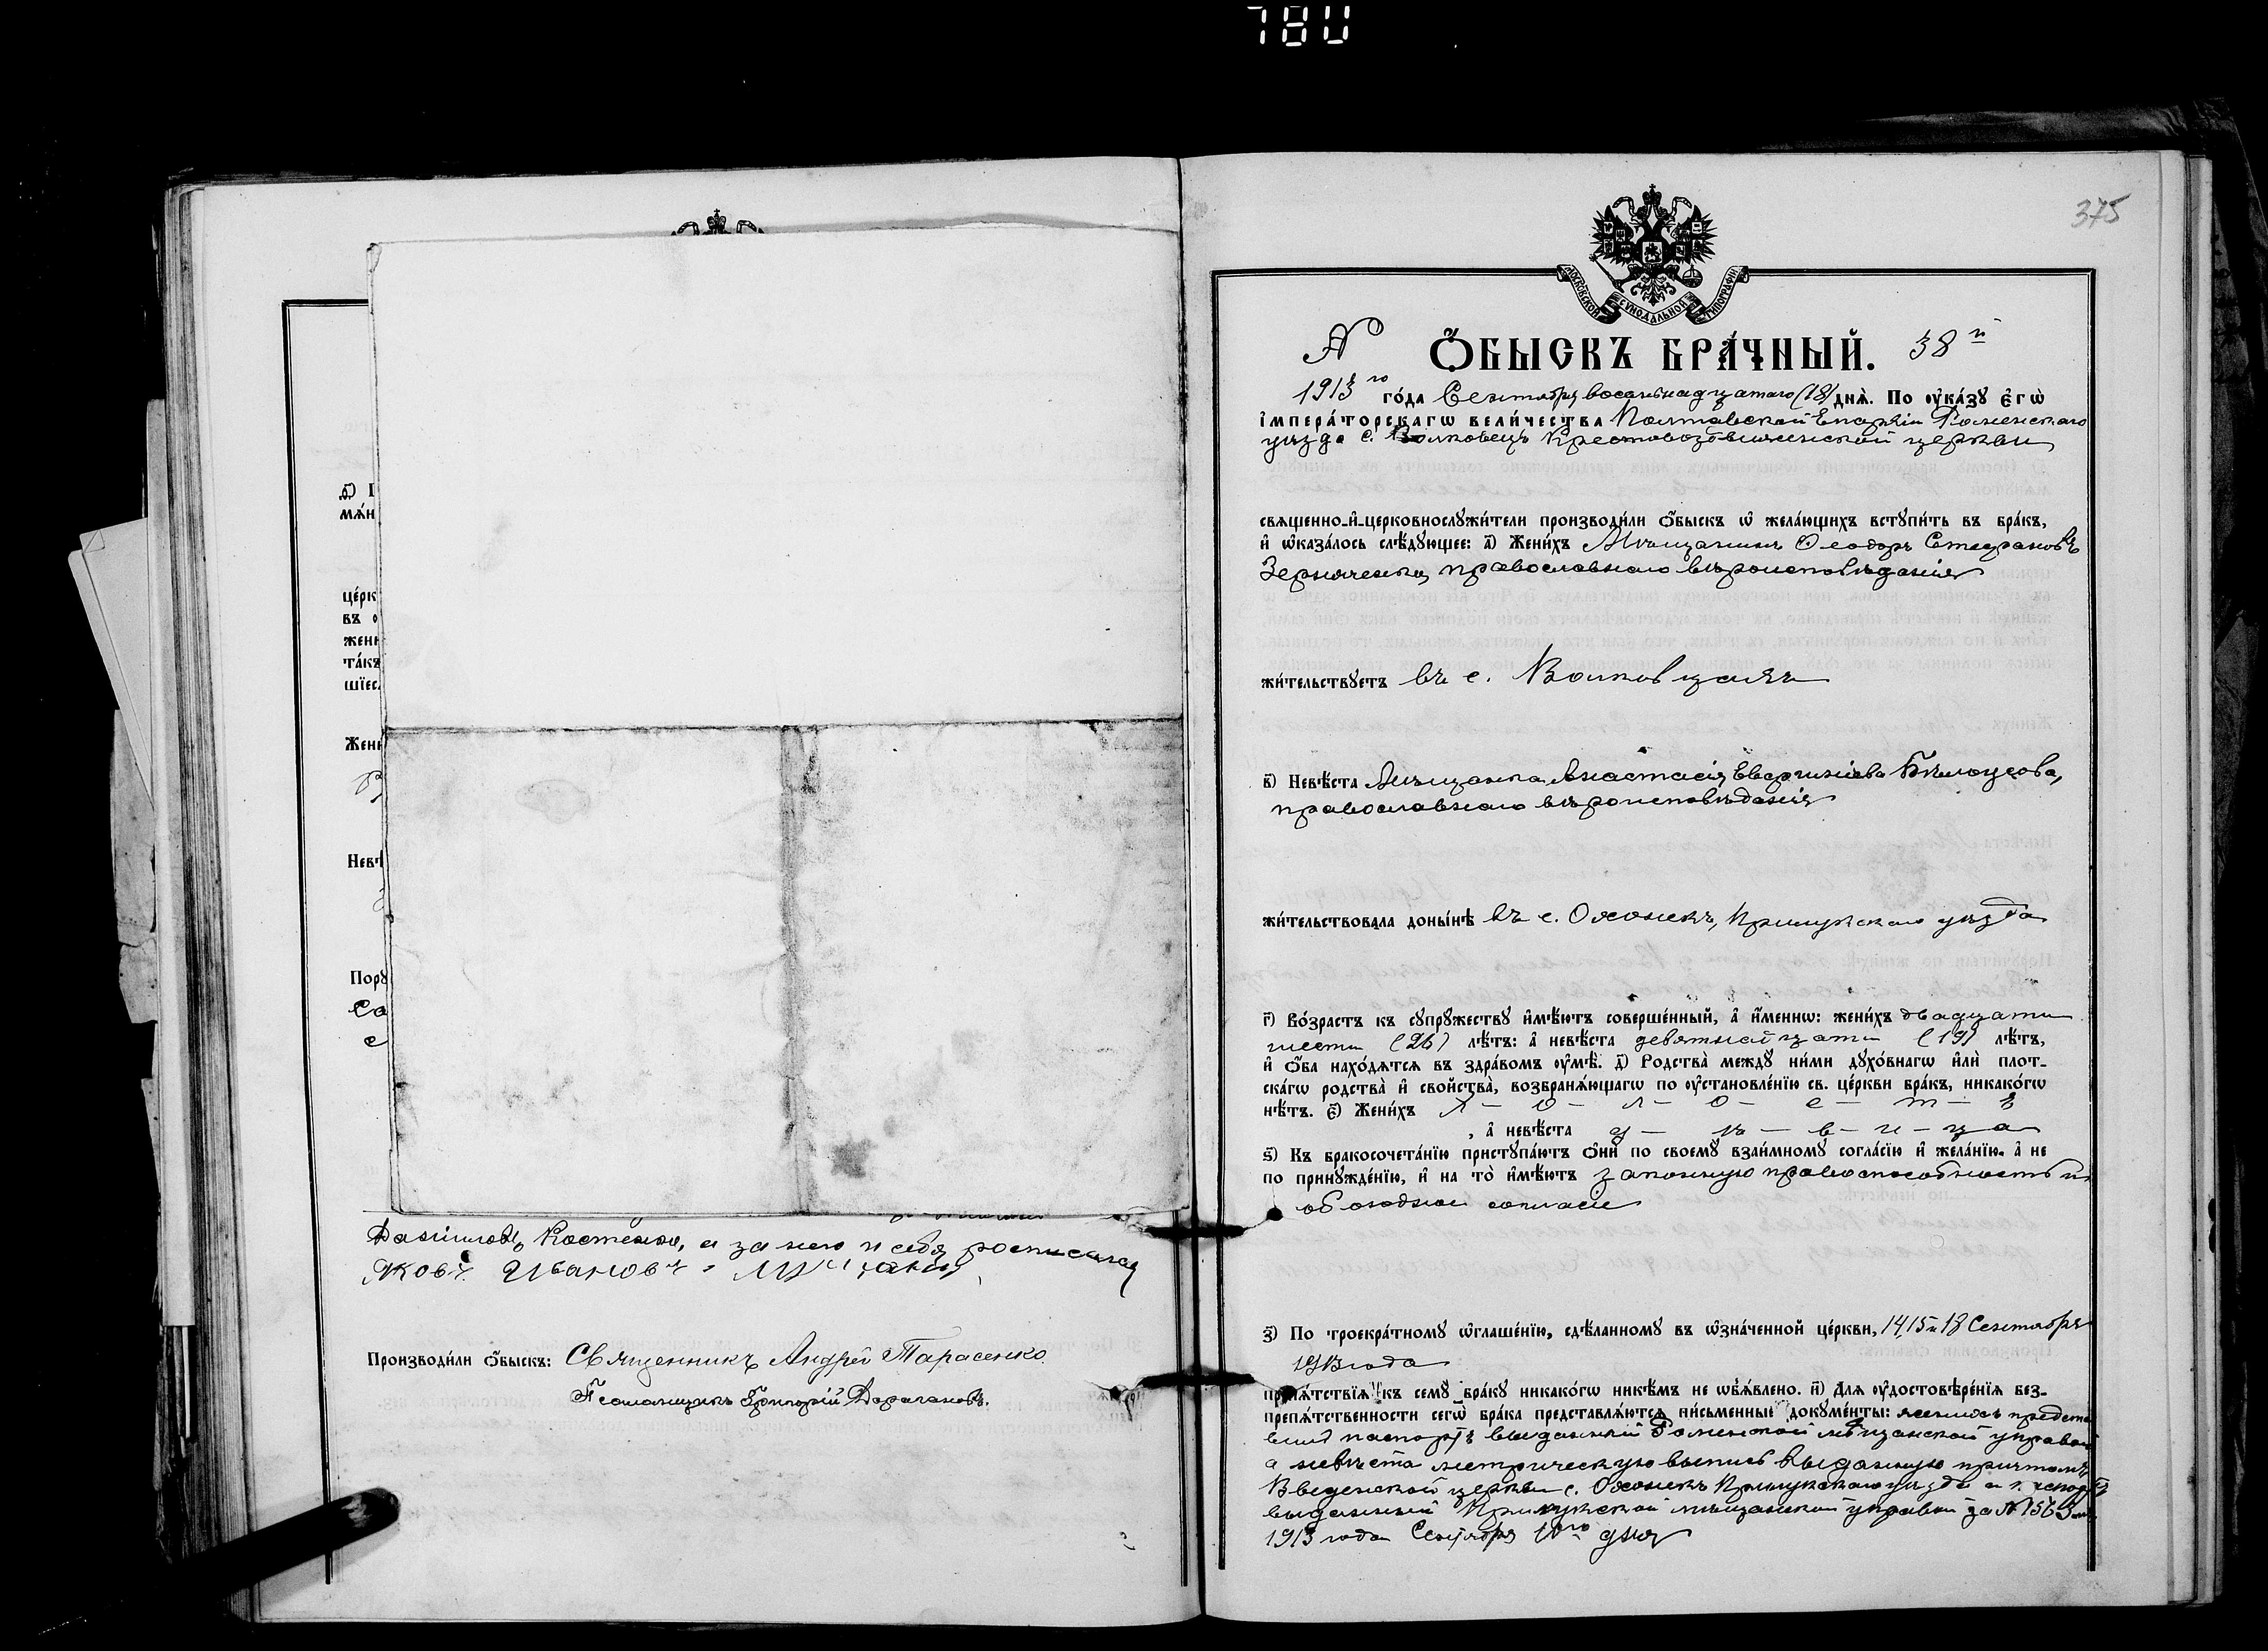 780
Ѻ҆БЫСКЪ БРА́ЧНЫЙ.
375
№ 38й
1913го го́да Сентября восемнадцатаго (18) днѧ̀. По ᲂу҆ка́зꙋ Е҆гѡ̀
І҆мпера́торскагѡ Вели́чества Полтавской Епархіи Роменскаго
уѣзда с. Волковецъ Крестовоздвиженской церкви
свѧщенно-и҆-церковнослꙋжи́тели производи́ли ѻ҆́быскъ ѡ҆ жела́ющихъ встꙋпи́ть въ бра́къ,
и҆ ѡ҆каза́лось слѣ́дꙋющее: а҃) Жени́хъ Мѣщанинъ Ѳеодоръ Стефановъ
православнаго вѣроисповѣданія
жи́тельствꙋетъ въ с. Волковцахъ
в҃) Невѣ́ста Мѣщанка Анастасія Бѣлоусова,
православнаго вѣроисповѣданія
жи́тельствовала доны́нѣ въ с. Охонькъ, Прилукскаго уѣзда
г҃) Во́зрастъ къ сꙋпрꙋ́жествꙋ и҆мѣ́ютъ соверше́нный, а҆ и҆́меннѡ: жени́хъ двадцати
шести (26) лѣ́тъ: а҆ невѣ́ста девятнадцати (19) лѣ́тъ,
и҆ ѻ҆́ба нахо́дѧтсѧ въ здра́вомъ ᲂу҆мѣ̀. д҃) Родства̀ междꙋ ни́ми дꙋхо́внагѡ и҆лѝ плот-
ска́гѡ родства̀ и҆ сво́йства̀, возбранѧ́ющагѡ по ᲂу҆становле́нїю св. це́ркви бра́къ, никако́гѡ
нѣ́тъ. е҃) Жени́хъ х — о — л — о — с — т — ъ
, а҆ невѣ́ста д — ѣ — в — и — ца
ѕ҃) Къ бракосочета́нїю пристꙋпа́ютъ ѻ҆нѝ по своемꙋ̀ взаи́мномꙋ согла́сїю и҆ жела́нїю, а҆ не
по принꙋжде́нїю, и҆ на то̀ и҆мѣ́ютъ законную правоспособность и
обоюдное согласіе
з҃) По троекра́тномꙋ ѡ҆глаше́нїю, сдѣ́ланномꙋ въ ѡ҆зна́ченной це́ркви, 14, 15 и 18 Сентября
1913 года
препѧ́тствїѧ къ семꙋ̀ бра́кꙋ никако́гѡ никѣ́мъ не ѡ҆б̾ѧ́влено. и҃) Длѧ ᲂу҆достовѣре́нїѧ без-
препѧ́тственности сегѡ̀ бра́ка представлѧ́ютсѧ пи́сьменные докꙋме́нты: женихъ предста
вилъ паспортъ выданный Роменской мѣщанской управой
а невѣста метрическую выпись выданную причтомъ
Введенской церкви с. Охонькъ Прилукскаго уѣзда и паспортъ
выданный Прилукской мѣщанской управой за № 1563
1913 года Сентября 10го дня
д҃)
мѧ́н
це́рк
въ о
жени
та́къ
шїес
Жени
Невѣ
Порꙋ
Со
с
Даніиловъ Костенко, а за него и себя росписался
Яковъ Ивановъ
Производи́ли ѻ҆́быскъ: Священникъ Андрей Тарасенко
Псаломщикъ Григорій